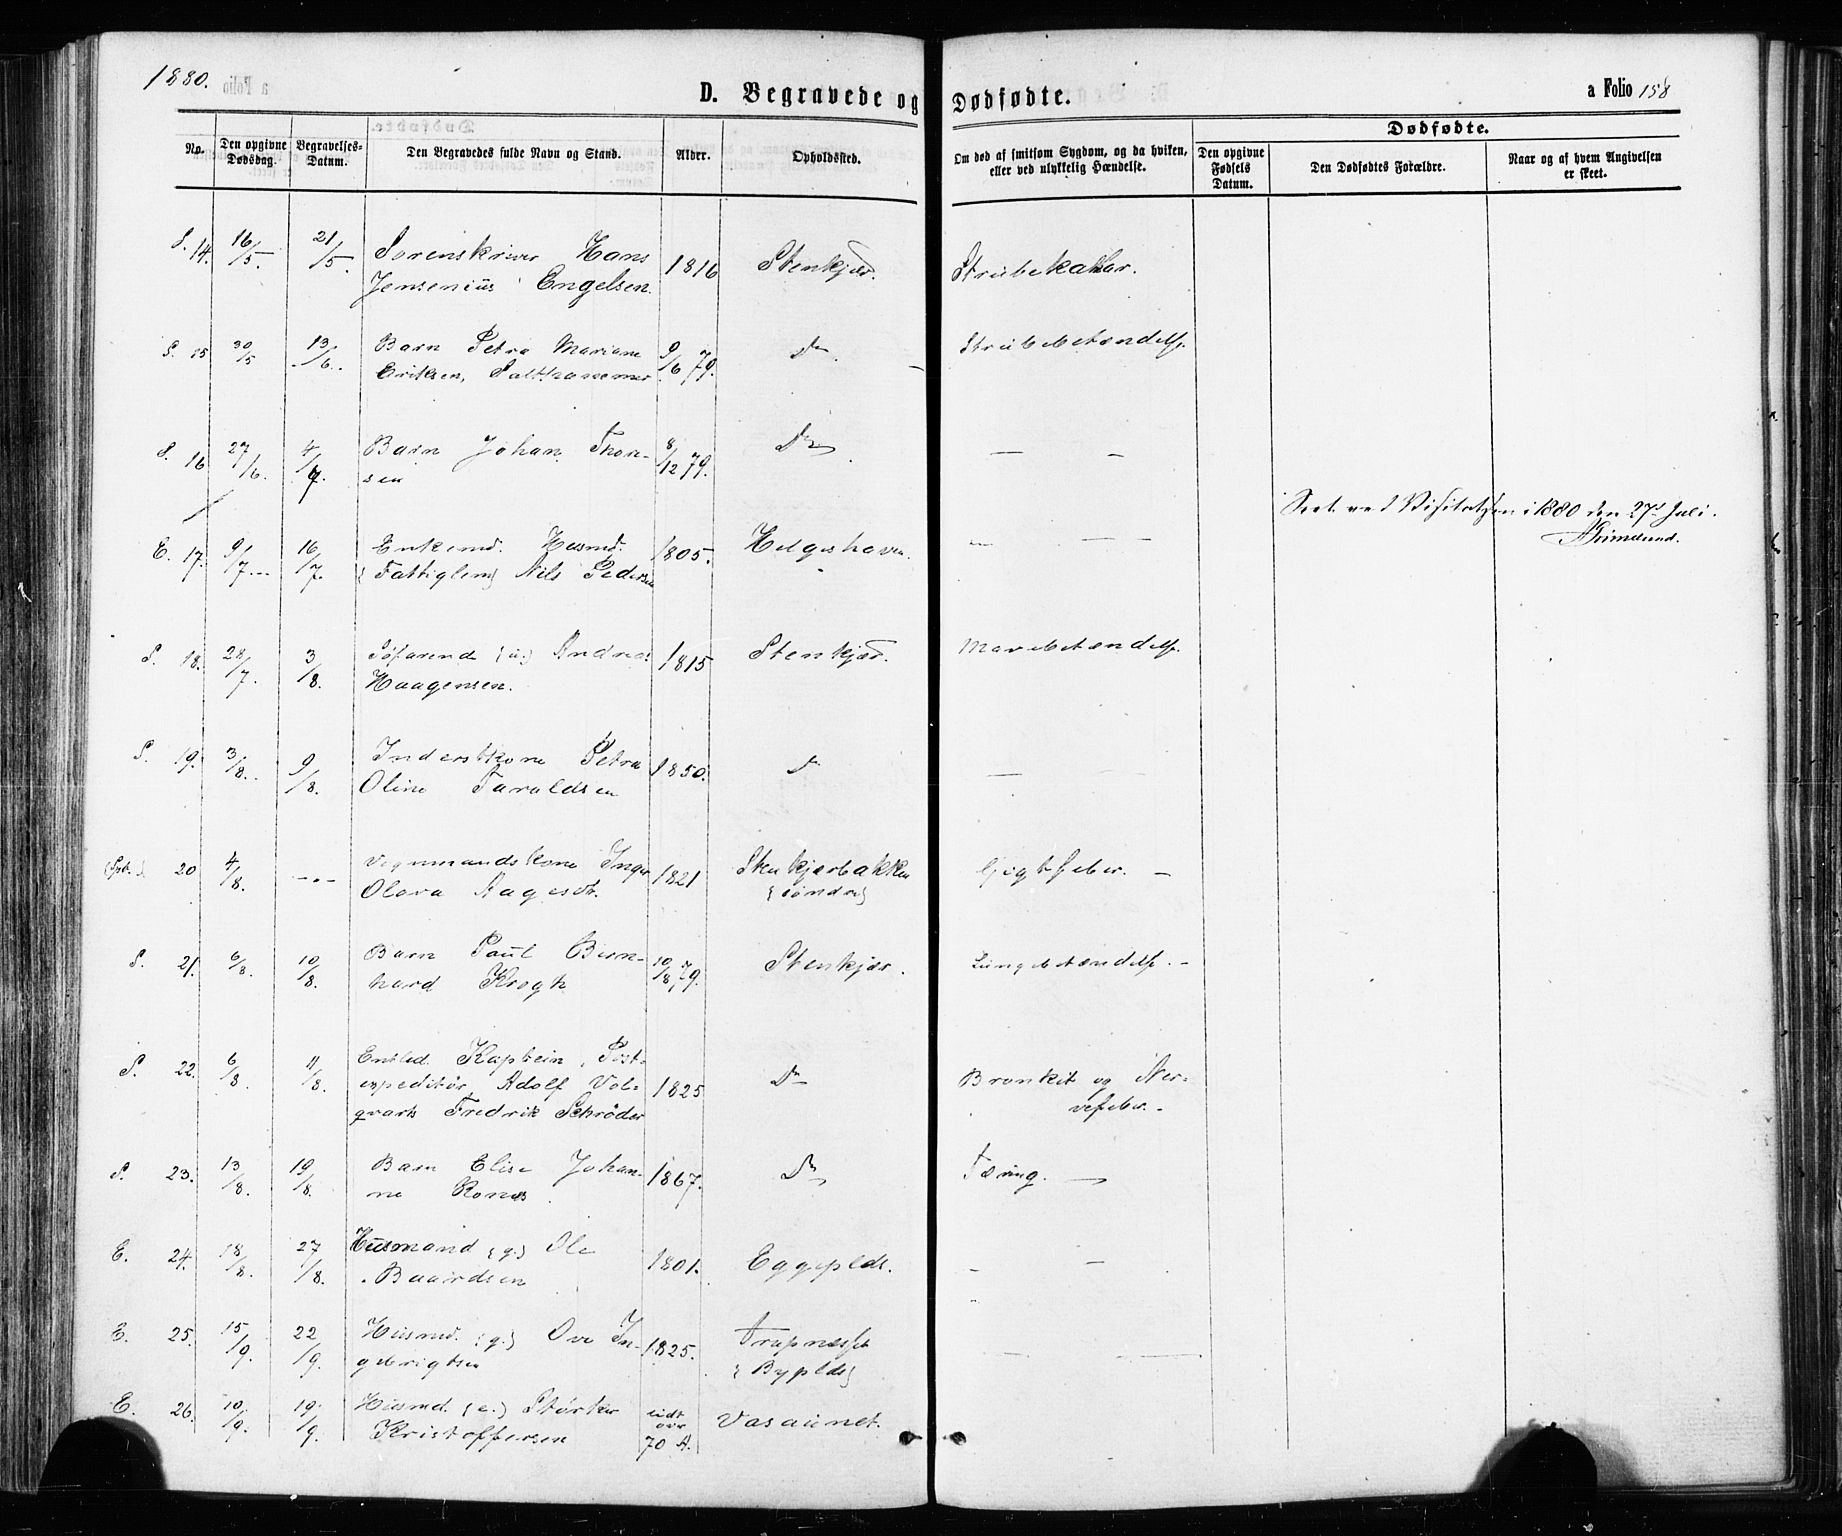 1880.
D. Begravede og Dødfødte.
a Folio 158
No.
Den opgivne Dødsdag.
Begravelses-Datum.
Den Begravedes fulde Navn og Stand.
Alder.
Opholdssted.
Om død af smitsom Sygdom, og da hviken,
eller ved ulykkelig Hændelse.
Dødfødte.
Den opgivne Fødsels Datum.
Den Dødfødtes Forældre.
Naar og af hvem Angivelsen
er skeet.
S. 14. 16/5. 21/5. Sorenskriver Hans 1816 Stenkjær. Strubekatar.
Jensenius Engelsen.
S. 15 30/5 13/6. Barn Petra Mariane 9/6 79. Do. Strubebetændelse.
Eriksen,
S. 16 27/6. 4/7. Barn Johan Thor- 8/12 79. Do. — —
sen
Seet ved Visitatsen i 1880 den 27de Juli.
Grimelund.
E. 17. 9/7 16/7. Enkemd. Husmd. 1805. Helgeshaven. — — —
(Fattiglem) Nils Pedersen
S. 18. 28/7. 3/8. Søfarende (u.) Andreas 1815 Stenkjær. Mavebetændelse.
Haagensen.
S. 19. 3/8. 9/8. Inderstkone Petra 1850. Do — —
Oline Taraldsen
20 4/8. Vognmandskone Inger 1821 Stenkjærbakken Gigtfeber. —
Olava Aagesdtr. (søndre)
S. 21. 6/8. 10/8. Barn Paul Bern- 10/8 79. Stenkjær. Lungebetændelse. -
hard Krogh
S. 22. 6/8. 11/8. Entled. Kaptein, Post- 1825 Do Bronkit og Ner-
expeditør, Adolf Vol- vefeber. -
qvarts Fredrik Schrøder
S. 23. 13/8. 19/8. Barn Elise Johan- 1867. Do Tæring. —
ne Ronæs
E. 24. 18/8. 27/8. Husmand (g.) Ole 1801. Eggeplds. - —
Baardsen
E. 25. 15/9. 22/9. Husmd. (g.) Ove In- 1825. Trapnæsset — —
gebrigtsen (Byplds)
E. 26. 10/9. 19/9. Husmd. (e.) Størker lidt over 70 A. Vasaunet.
Kristoffersen